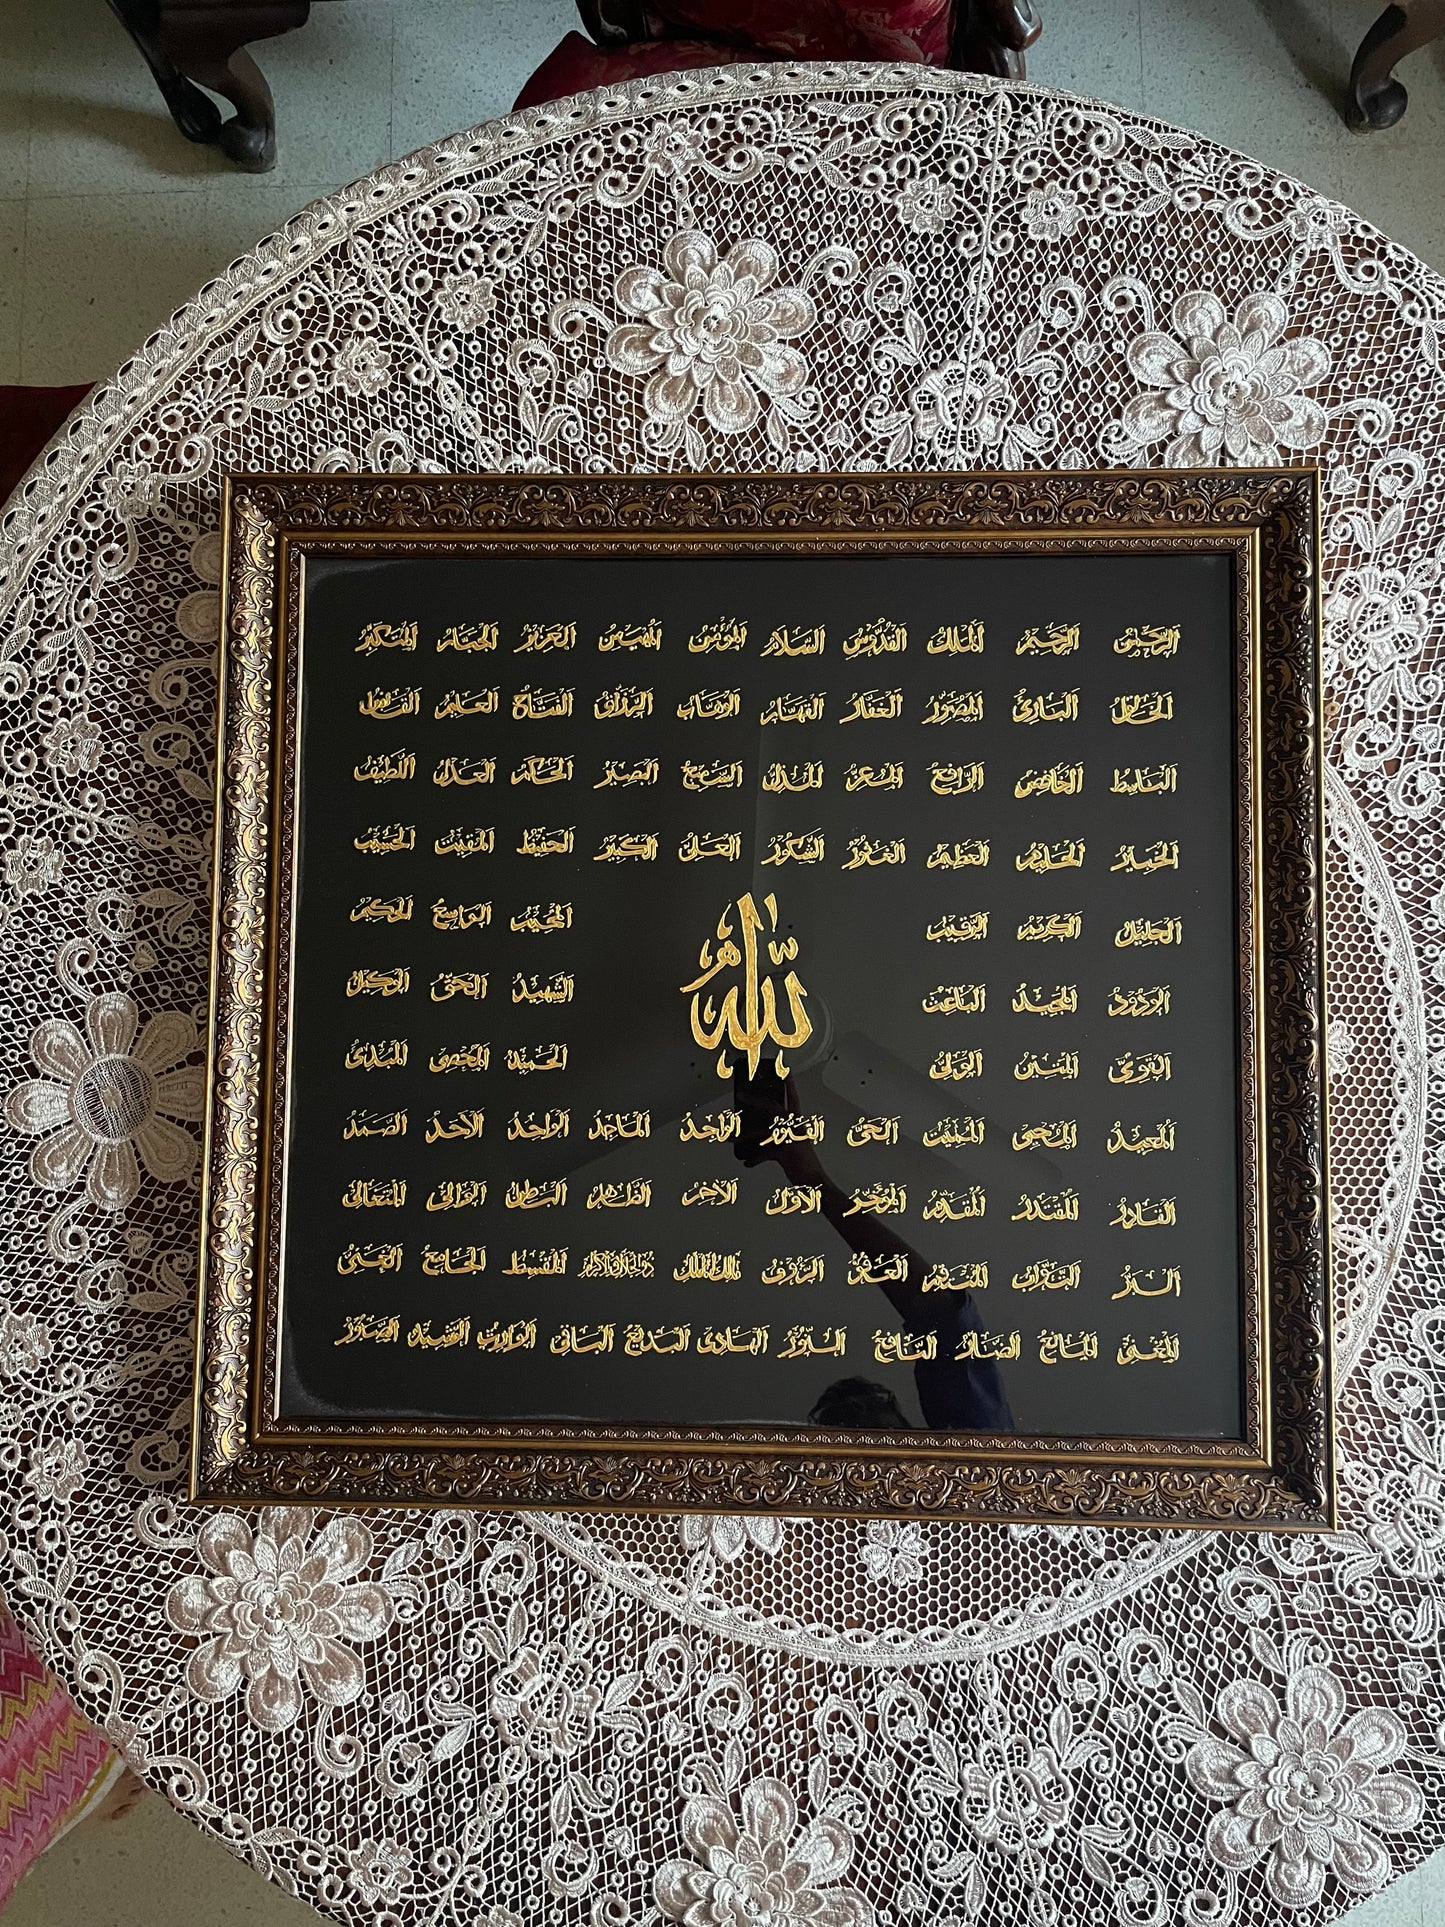 الرحمن الرحيم الملك القدوس السلام المؤمن المهيمن العزيز الجبار المتكبر
الخالق البارئ المصور الغفار القهار الوهاب الرزاق الفتاح العليم القابض
الباسط الخافض الرافع المعز المذل السميع البصير الحكم العدل اللطيف
الخبير الحليم العظيم الغفور الشكور العلي الكبير الحفيظ المقيت الحسيب
الجليل الكريم الرقيب المجيب الواسع الحكيم
الله
الودود المجيد الباعث الشهيد الحق الوكيل
القوي المتين الولي الحميد المحصي المبدئ
المعيد المحيي المميت الحي القيوم الواجد الماجد الواحد الاحد الصمد
القادر المقتدر المقدم المؤخر الاول الآخر الظاهر الباطن الوالي المتعالي
البر التواب المنتقم العفو الرؤوف مالك الملك ذو الجلال والاكرام المقسط الجامع الغني
المغني المانع الضار النافع النور الهادي البديع الباقي الوارث الرشيد الصبور